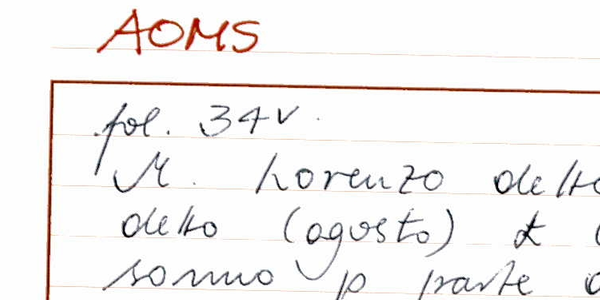 AOMS
fol. 34v.
M. Lorenzo detto
detto (agosto)
sonno p parte